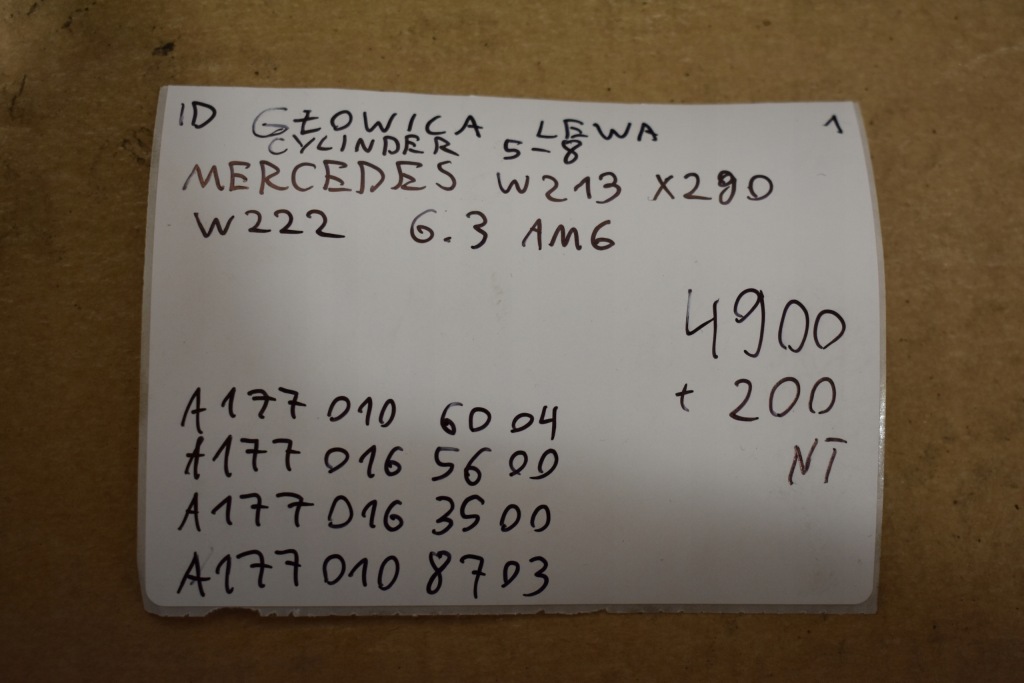 ID GŁOWICA LEWA 1
CYLINDER 5-8
MERCEDES W213 X290
W222 6.3 AMG
4900
+ 200
NT
A177 010 60 04
A177 016 56 00
A177 016 35 00
A177 010 87 03